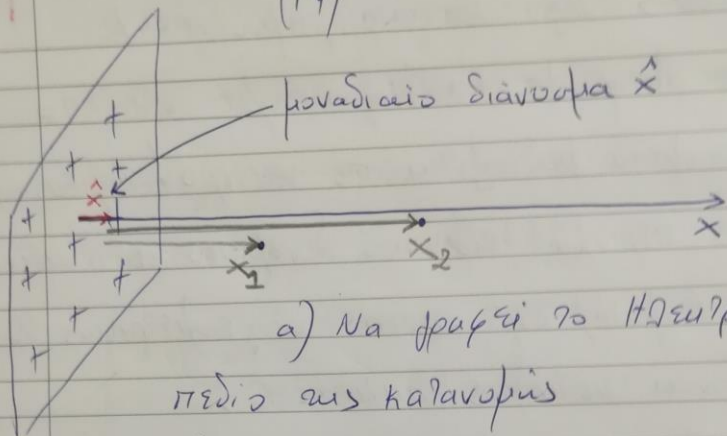 μοναδιαίο διάνυσμα x̂
+
+ +
x̂
+
x
+
x₁
x₂
+ +
+
+
α) Να γραφεί το Ηλεκτρ
πεδίο της κατανομής